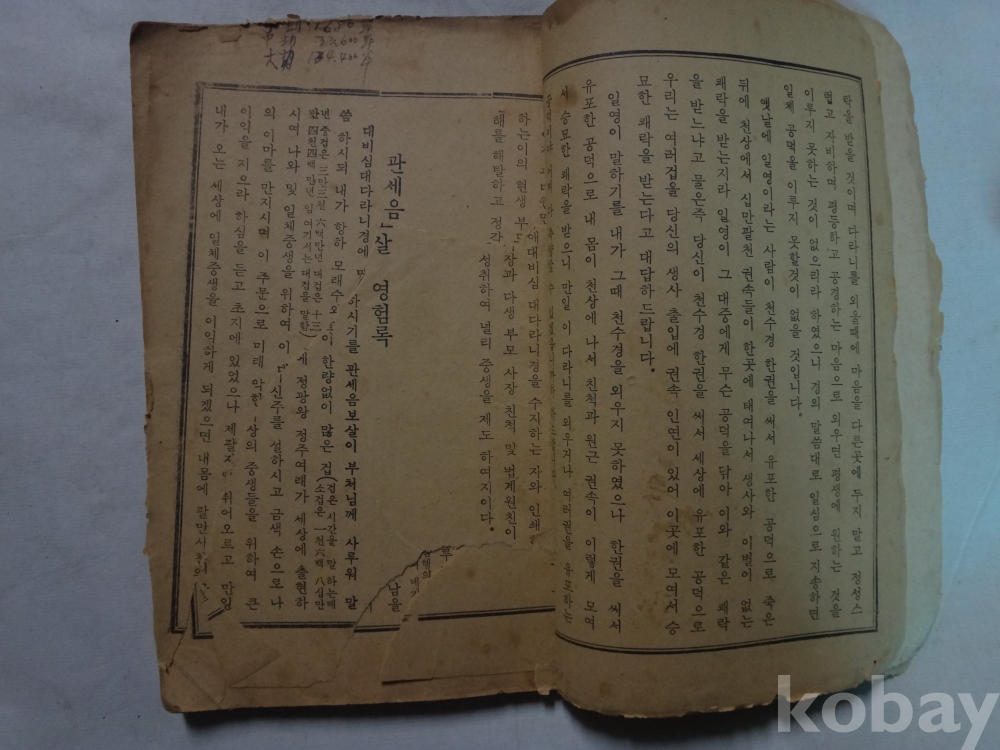 탁을 받을 것이며 다라니를 외울때에 마음을 다른곳에 두지 말고 정성스
럽고 자비하며 평등하고 공경하는 마음으로 외우면 평생에 원하는 것을
이루지 못하는 것이 없으리라 하였으니 경의 말씀대로 일심으로 지송하면
일체 공덕을 이루지 못할것이 없을 것입니다.
옛날에 일영이라는 사람이 천수경 한권을 써서 유포한 공덕으로 죽은
뒤에 천상에서 십만팔천 권속들이 한곳에 태여나서 생사와 이별이 없는
쾌락을 받는지라 일영이 그 대중에게 무슨 공덕을 닦아 이와 같은 쾌락
을 받느냐고 물은즉 당신이 천수경 한권을 써서 세상에 유포한 공덕으로
우리는 여러겁을 당신의 생사 출입에 권속 인연이 있어 이곳에 모여서 승
묘한 쾌락을 받는다고 대답하드랍니다.
일영이 말하기를 내가 그때 천수경을 외우지 못하였으나 한권을 써서
유포한 공덕으로 내 몸이 천상에 나서 친척과 원근 권속이 이렇게 모여
서 승묘한 쾌락을 받으니 만일 이 다라니를 외우거나 여러권을 유포하는
대비심 대다라니경을 수지하는 자와 인쇄
하는이의 현생 부 장과 다생 부모 사장 친척 및 법계원친이
해를 해탈하고 정각 성취하여 널리 중생을 제도 하여지이다.
관세음 살 영험록
대비심대다라니경에 하시기를 관세음보살이 부처님께 사루워 말
씀 하시되 내가 항하 모래수와 이 한량없이 많은 겁(겁은 시간을 말하는데 소겁은 一천六백八십만
년 중겁은 三만三천六백만년 대겁은 十三
만四천四백만년 일여기서는 대겁을 말함)에 정광왕 정주여래가 세상에 출현하
시여 나와 및 일체중생을 위하여 이 신주를 설하시고 금색 손으로 나
의 이마를 만지시며 이 주문으로 미래 악한 상의 중생들을 위하여 큰
이익을 지으라 하심을 듣고 초지에 있었으나 제팔지 뛰어오르고 만일
내가 오는 세상에 일체중생을 이익하게 되겠으면 내몸에 팔만사
남을
kobay